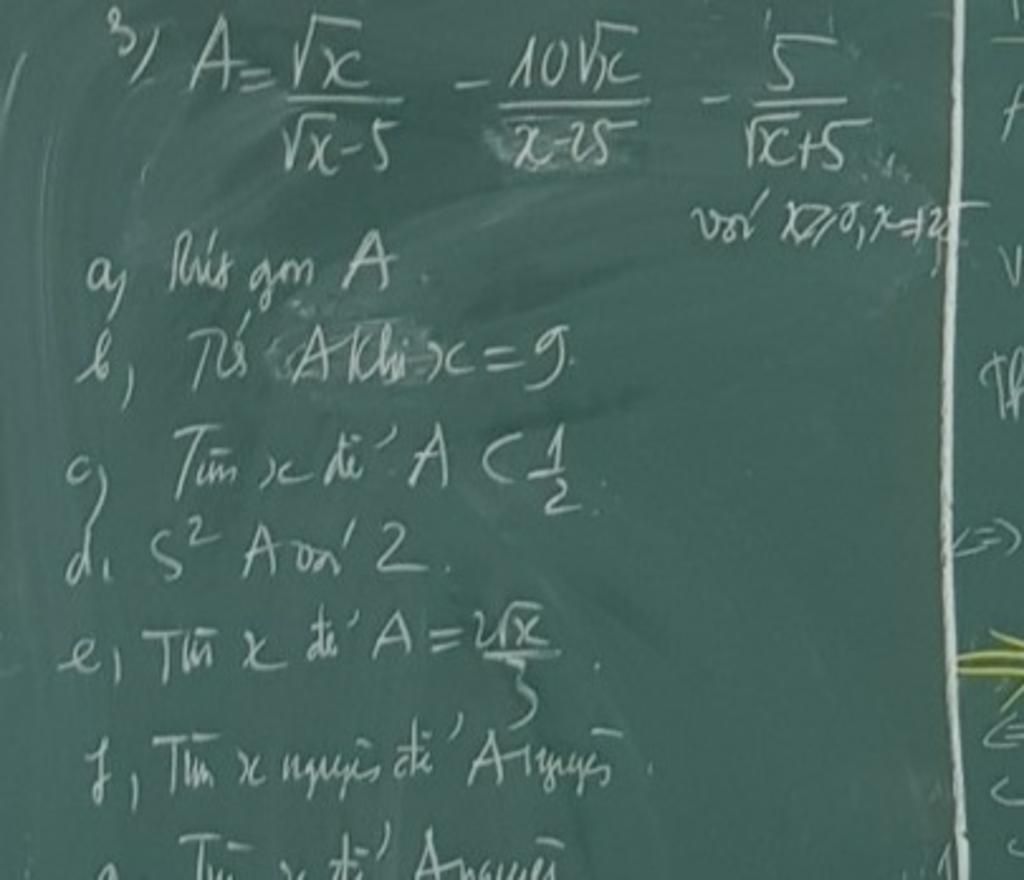 3, A = \frac{\sqrt{x}}{\sqrt{x}-5} - \frac{10\sqrt{x}}{x-25} - \frac{5}{\sqrt{x}+5}
với x ≥ 0, x ≠ 25
a, Rút gọn A.
b, A khi x = 9.
c, Tìm x để A < \frac{1}{2}.
d, S² A với 2.
e, Tìm x để A = \frac{2\sqrt{x}}{3}.
f, Tìm x nguyên để A nguyên.
Tìm x để A nguyên